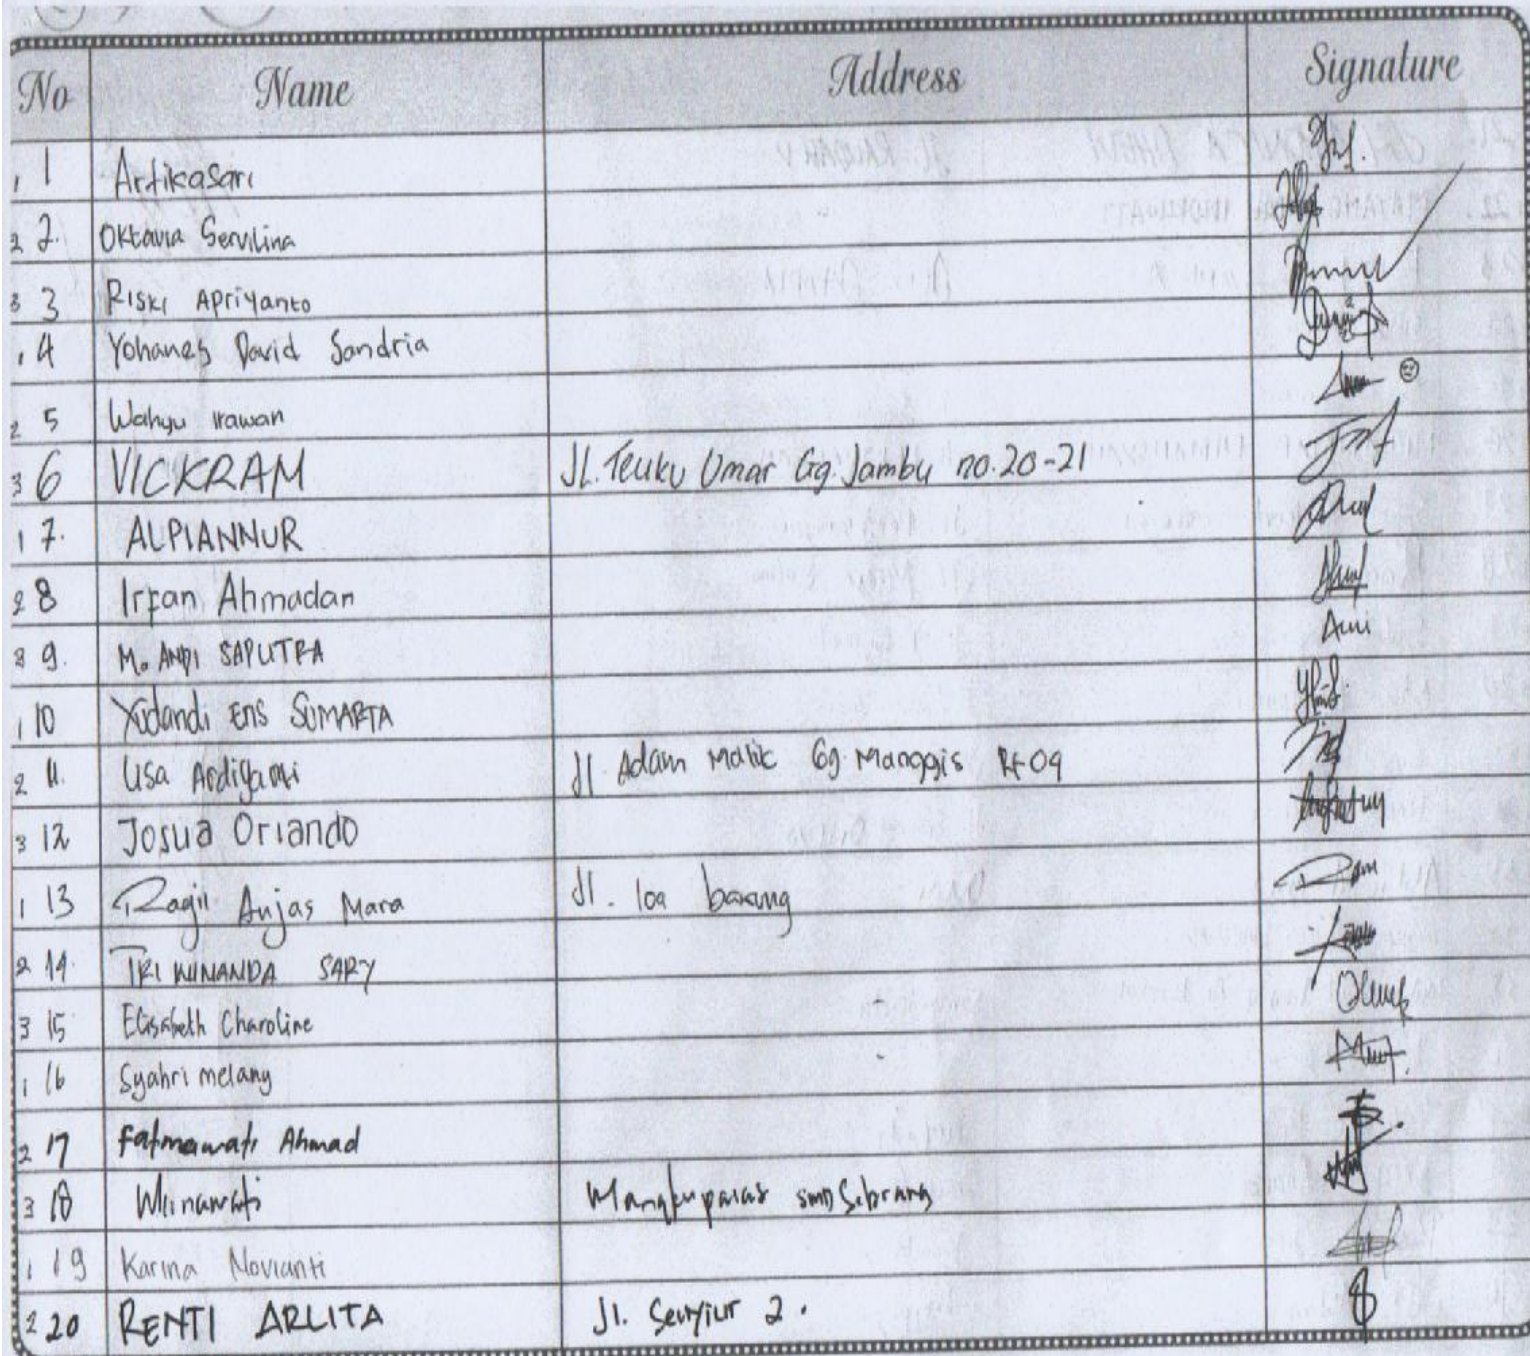 No Name Address Signature
1 1 Artikasari
2 2. Oktavia Servilina
3 3 Riski Apriyanto
1 4 Yohanes David Sandria
2 5 Wahyu Irawan
3 6 VICKRAM Jl. Teuku Umar Gg. Jambu no. 20-21
1 7. ALPIANNUR
2 8 Irfan Ahmadan
3 9. M. ANDI SAPUTRA
1 10 Yudandi Ens SUMARTA
2 11. Lisa Ardiyanti Jl. Adam Malik Gg. Manggis Rt 09
3 12 Josua Oriando
1 13 Ragil Anjas Mara Jl. loa bakung
2 14. TRI WINANDA SARY
3 15 Elisabeth Charoline
1 16 Syahri melany
2 17 Fatmawati Ahmad
3 18 Mangkupalas smd Sebrang
1 19 Karina Novianti
2 20 RENTI ARLITA Jl. 2.